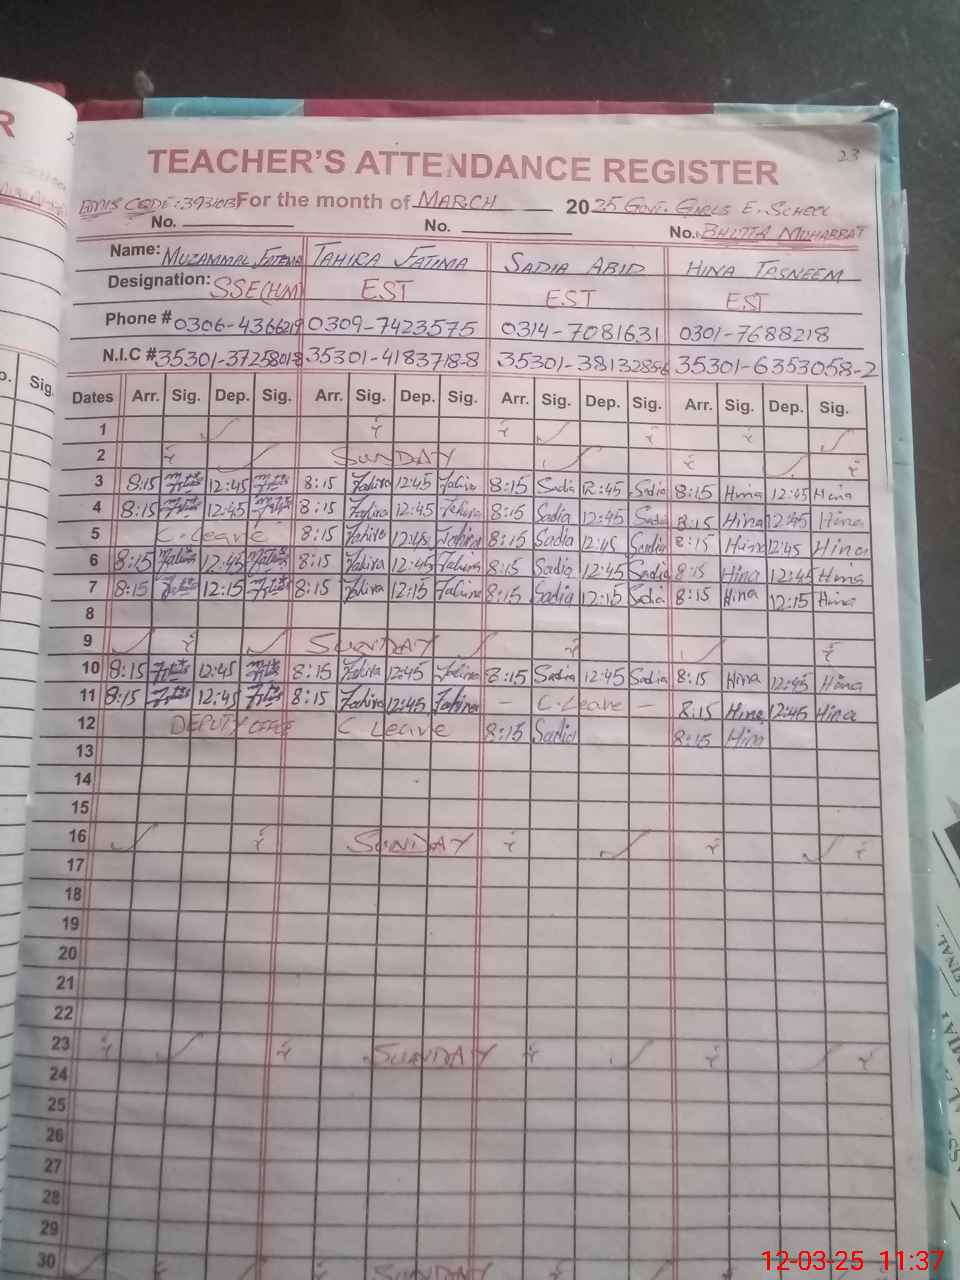 R
23
TEACHER'S ATTENDANCE REGISTER
For the month of MARCH 2025 GOVT. GIRLS E. SCHOOL
No. No. No. BHUTTA MUHABBAT
Name: MUZAMMAL FATEMA TAHIRA FATIMA SADIA ABID HINA TASNEEM
Designation: SSE(HM) EST EST EST
Phone # 0306-4366219 0309-7423575 0314-7081631 0301-7688218
N.I.C # 35301-3725801-8 35301-4183718-8 35301-3813285-6 35301-6353058-2
Sig.
Dates Arr. Sig. Dep. Sig. Arr. Sig. Dep. Sig. Arr. Sig. Dep. Sig. Arr. Sig. Dep. Sig.
1
2 SUNDAY
3 8:15 12:45 8:15 Tahira 12:45 Tahira 8:15 Sadia 12:45 Sadia 8:15 Hina 12:45 Hina
4 8:15 12:45 8:15 Tahira 12:45 Tahira 8:15 Sadia 12:45 Sadia 8:15 Hina 12:45 Hina
5 C-Leave 8:15 Tahira 12:45 Tahira 8:15 Sadia 12:45 Sadia 8:15 Hina 12:45 Hina
6 8:15 12:45 8:15 Tahira 12:45 Tahira 8:15 Sadia 12:45 Sadia 8:15 Hina 12:45 Hina
7 8:15 12:15 8:15 Tahira 12:15 Tahira 8:15 Sadia 12:15 Sadia 8:15 Hina 12:15 Hina
8
9 SUNDAY
10 8:15 12:45 8:15 Tahira 12:45 Tahira 8:15 Sadia 12:45 Sadia 8:15 Hina 12:45 Hina
11 8:15 12:45 8:15 Tahira 12:45 Tahira - C-Leave - 8:15 Hina 12:45 Hina
12 DEPUTY OFFICE C Leave 8:15 Sadia 8:15 Hina
13
14
15
16 SUNDAY
17
18
19
20
21
22
23 SUNDAY
24
25
26
27
28
29
30 SUNDAY
FINAL
12-03-25 11:37